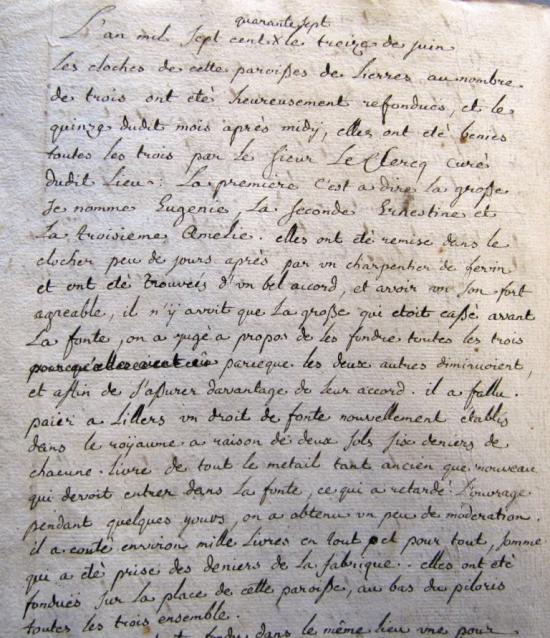 quarante sept
L'an mil sept cent x le treize de juin
les cloches de cette paroisses de Lierres au nombre
de trois ont eté heureusement refondues, et le
quinze dudit mois après midÿ, elles ont eté benies
toutes les trois par le sieur Le Clercq curé
dudit Lieu : La premiere c'est a dire la grosse
se nomme Eugenie, La seconde Ernestine et
La troisieme Amelie. elles ont eté remise dans le
clocher peu de jours après par un charpentier de
et ont eté trouveés d'vn bel accord, et avoir vn son fort
agreable, il n'ÿ avoit que La grosse qui etoit cassé avant
La fonte, on a jugé a propos de les fondre toutes les trois
parceque les deux autres diminuoient,
et affin de s'assurer davantage de leur accord. il a fallu
paier a Lillers vn droit de fonte nouvellement établis
dans le roÿaume a raison de deux sols six deniers de
chacune livre de tout le metail tant ancien que nouveau
qui devoit entrer dans La fonte, ce qui a retardé L'ouvrage
pendant quelques yours, on a obtenu vn peu de moderation.
il a couté environ mille Livres en tout et pour tout, somme
qui a eté prise des deniers de La fabrique. elles ont eté
fonduës sur la place de cette paroisse, au bas du piloris
toutes les trois ensemble.
fondu dans le même lieu vne pour